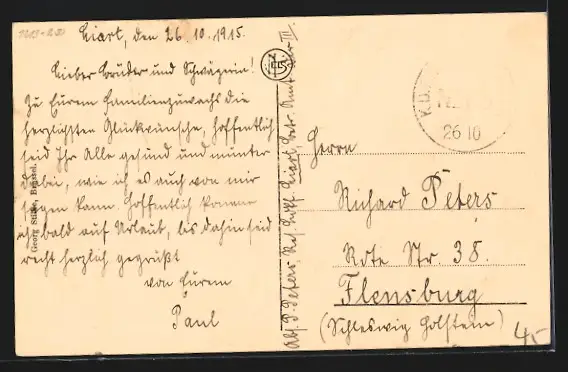 Liart, den 26.10.1915.
Lieber Bruder und Schwägerin!
Zu Eurem Familienzuwachs die
herzligsten Glückwünsche, hoffentlich
seid Ihr Alle gesund und munter
dabei, wie ich es auch von mir
sagen kann. Hoffentlich komme
ich bald auf Urlaub, bis dahin seid
recht herzlich gegrüßt
von Eurem
Paul
Georg Stilke, Brüssel.
Abs. P. Peters, Liart,
26 10
Herrn
Richard Peters
Rote Str. 38.
Flensburg
(Schleswig Holstein)
45